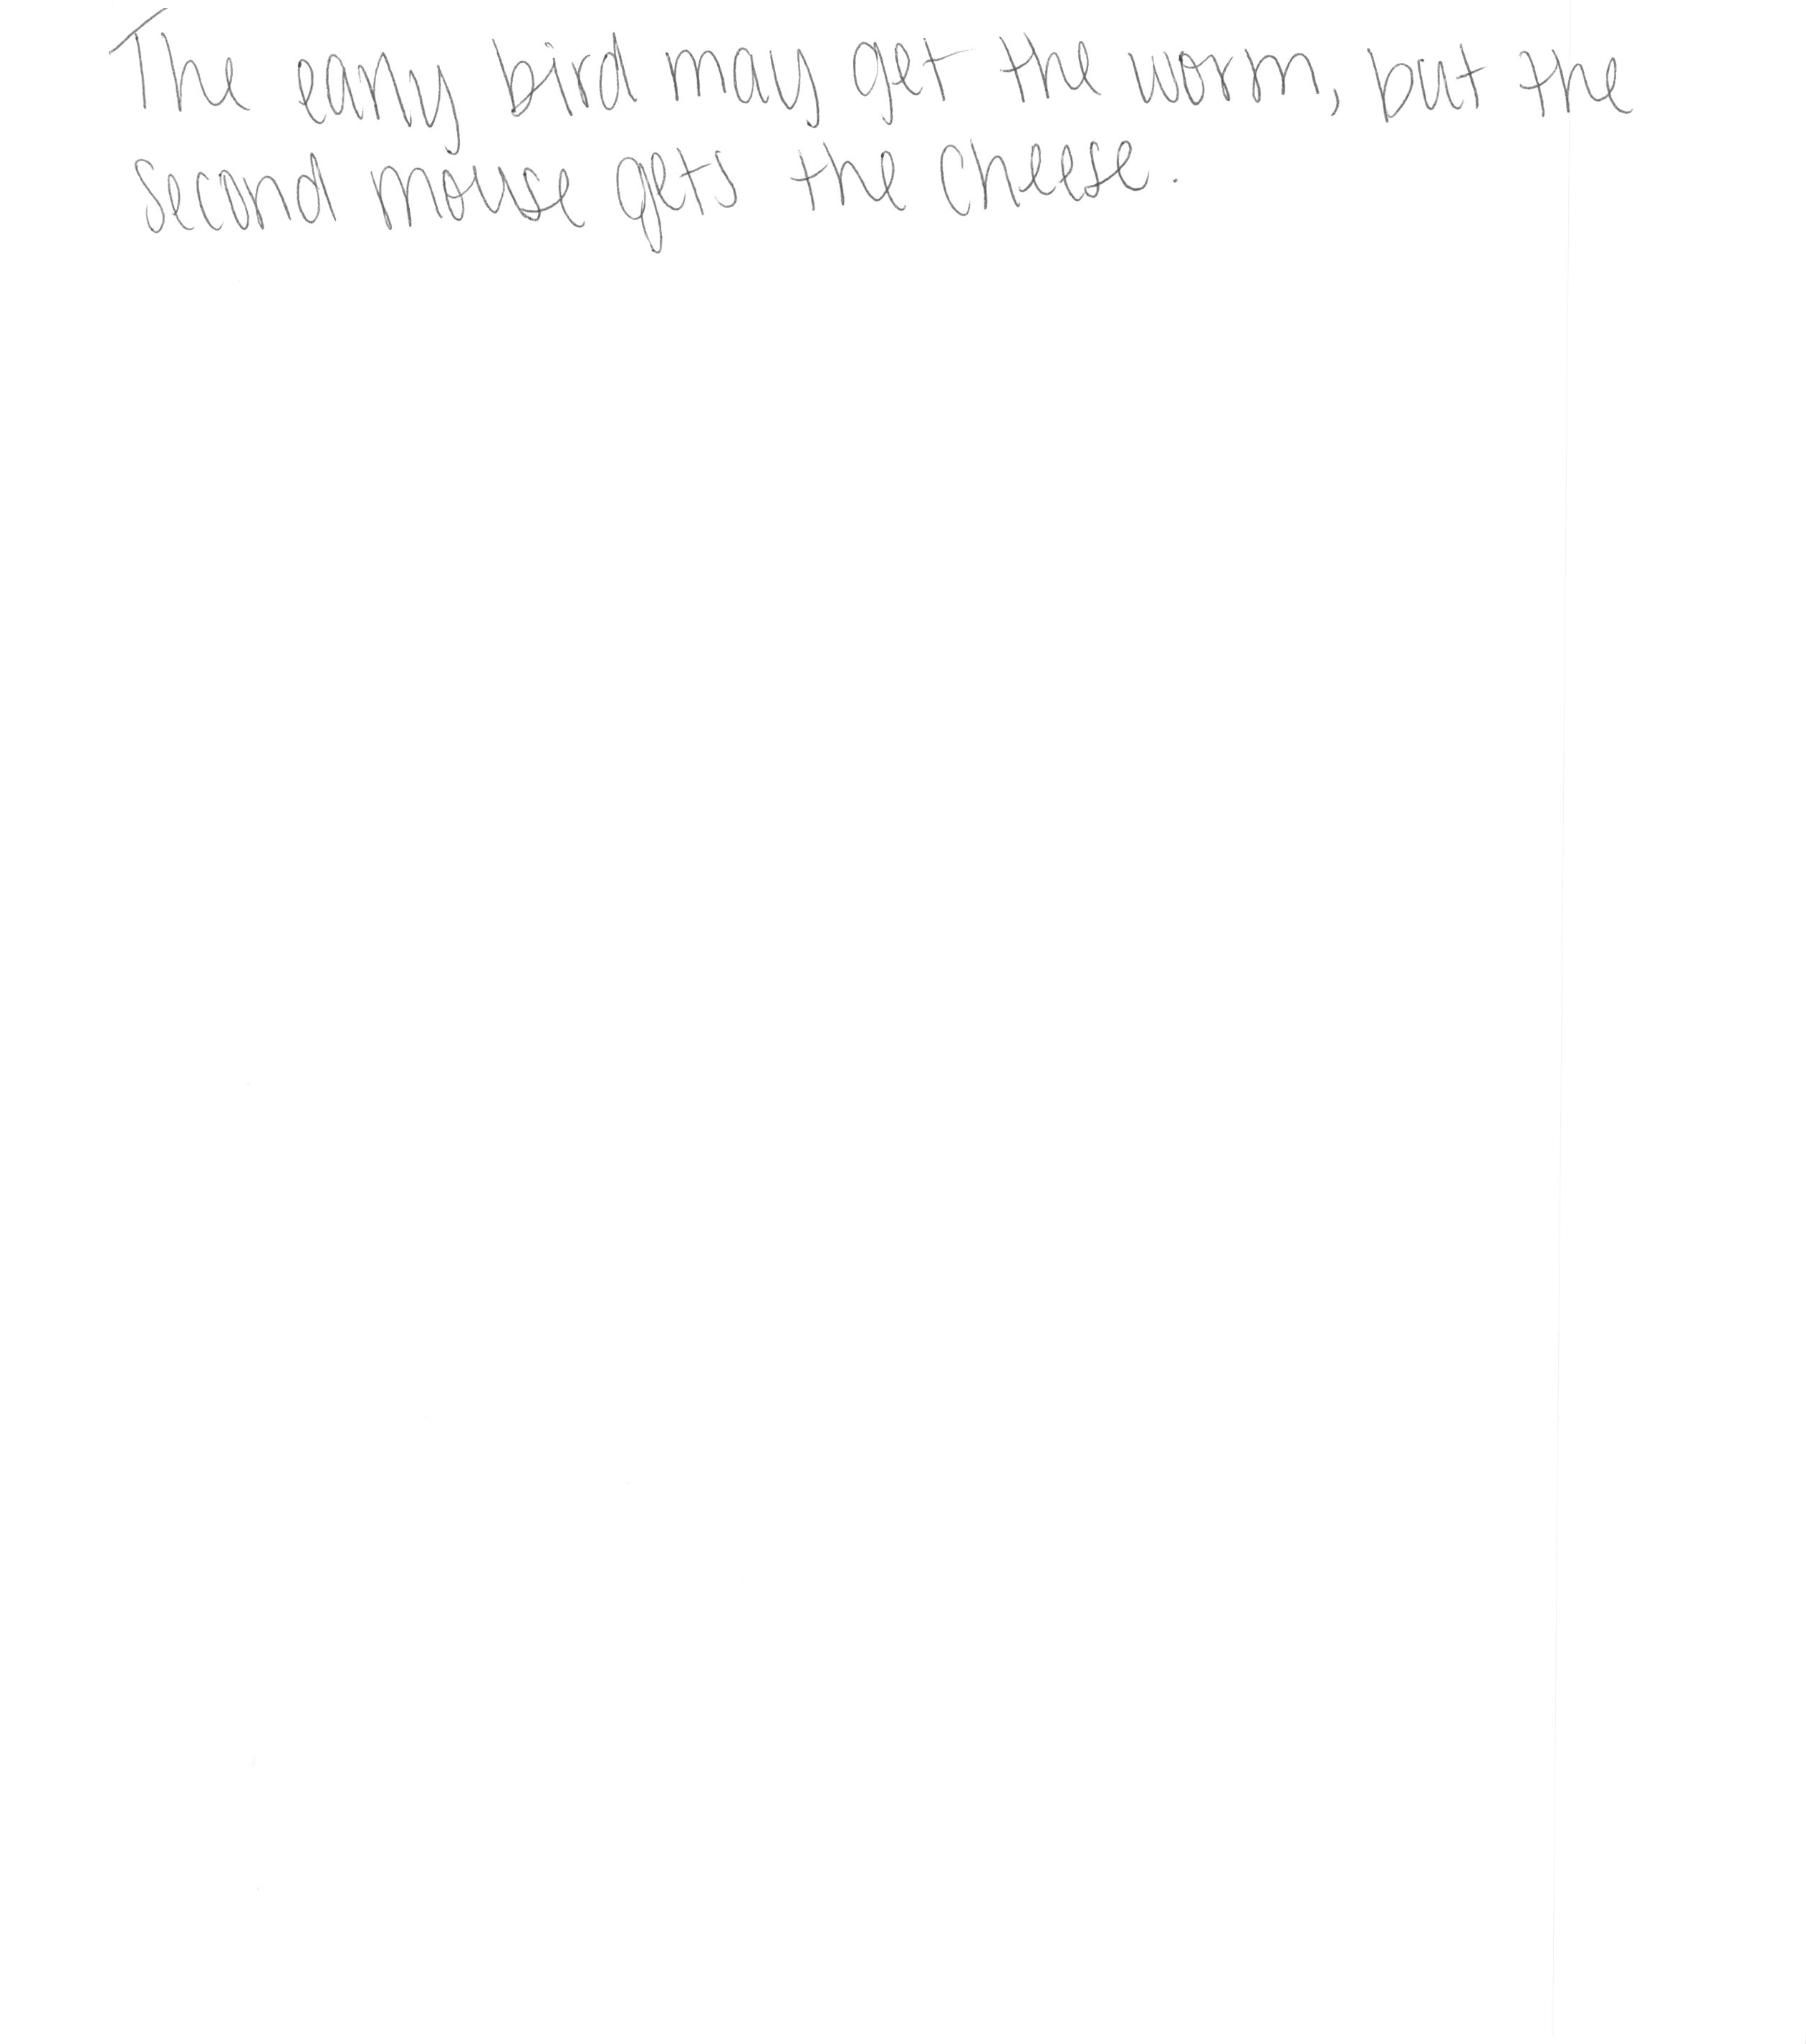 The early bird may get the worm, but the
second mouse gets the cheese.